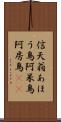 信天翁あほ
う鳥阿呆鳥
阿房鳥